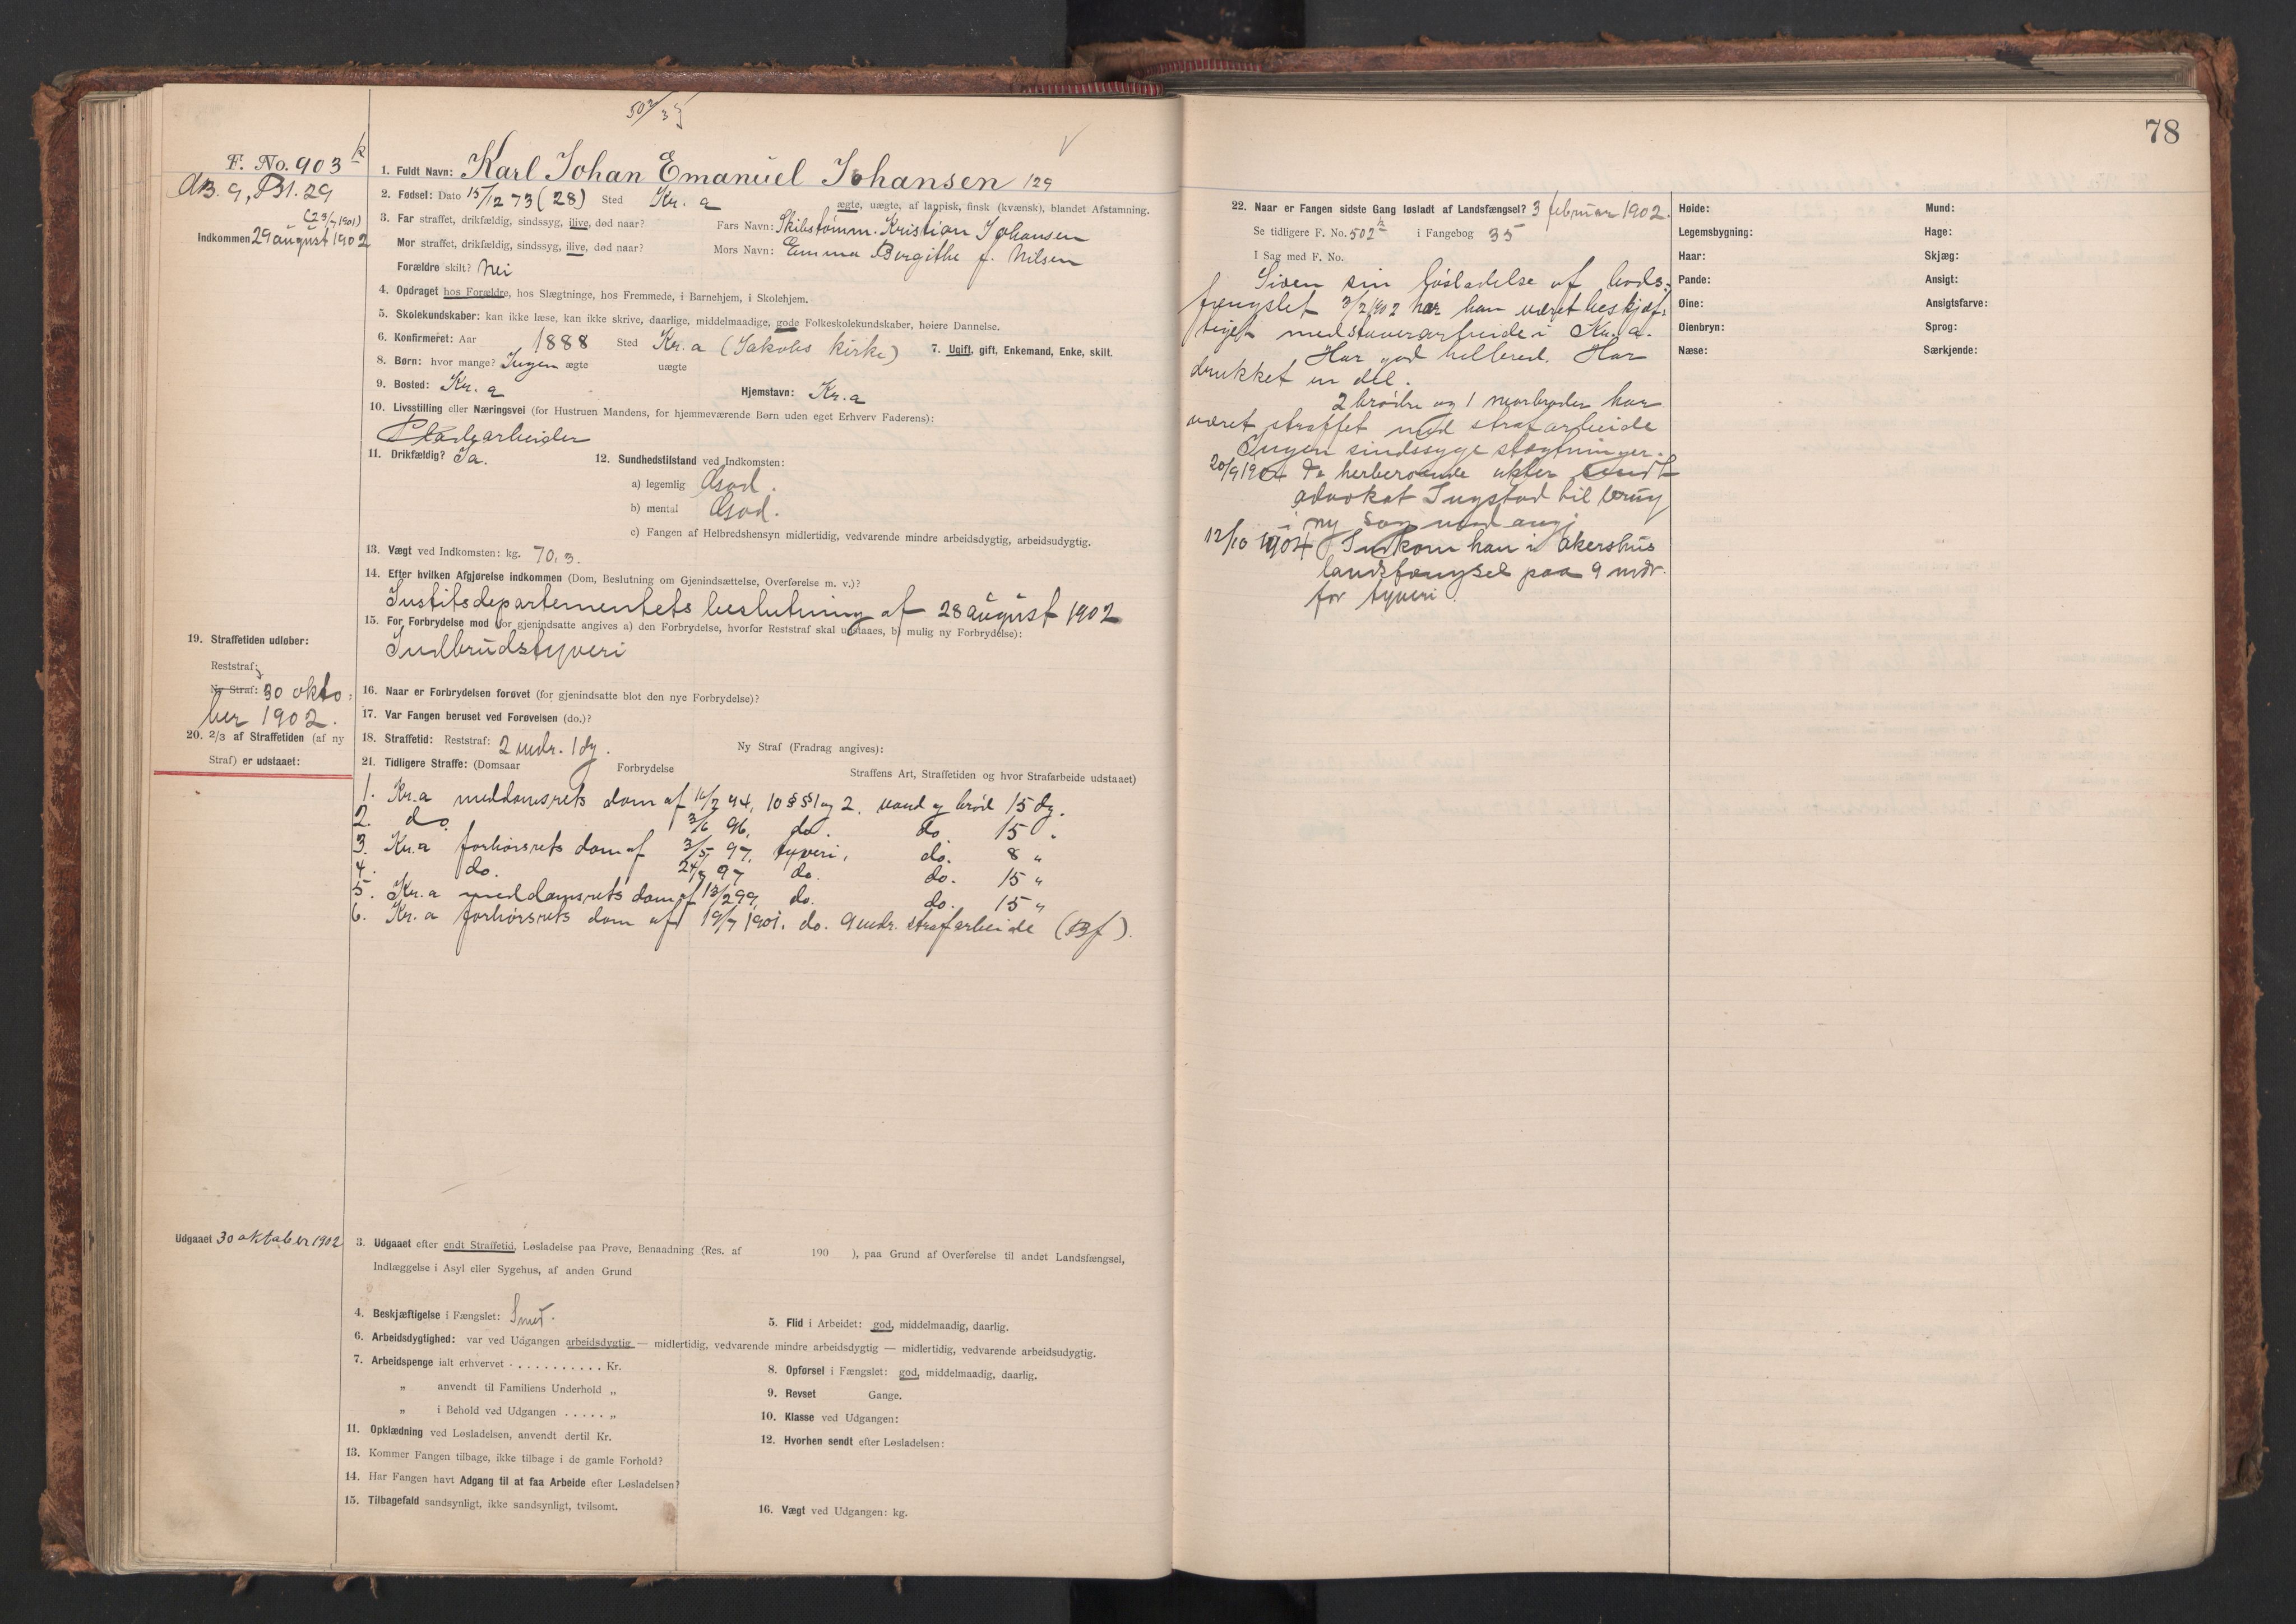 502/35
78
F. No. 903 k
AB. 9, Bl. 29
(23/7 1901)
Indkommen 29 august 1902
1. Fuldt Navn: Karl Johan Emanuel Johansen 129
2. Fødsel: Dato 15/12 73 (28) Sted Kr. a ægte, uægte, af lappisk, finsk (kvænsk), blandet Afstamning.
3. Far straffet, drikfældig, sindssyg, ilive, død naar? Fars Navn: Skibstømm. Kristian Johansen
Mor straffet, drikfældig, sindssyg, ilive, død naar? Mors Navn: Emma Birgithe f. Nilsen
Forældre skilt? Nei
4. Opdraget hos Forældre, hos Slægtninge, hos Fremmede, i Barnehjem, i Skolehjem.
5. Skolekundskaber: kan ikke læse, kan ikke skrive, daarlige, middelmaadige, gode Folkeskolekundskaber, høiere Dannelse.
6. Konfirmeret: Aar 1888 Sted Kr. a (Jakobs kirke) 7. Ugift, gift, Enkemand, Enke, skilt.
8. Børn: hvor mange? Ingen ægte uægte
9. Bosted: Kr. a Hjemstavn: Kr. a
10. Livsstilling eller Næringsvei (for Hustruen Mandens, for hjemmeværende Børn uden eget Erhverv Faderens):
arbeider
11. Drikfældig? Ja. 12. Sundhedstilstand ved Indkomsten:
a) legemlig God.
b) mental God.
c) Fangen af Helbredshensyn midlertidig, vedvarende mindre arbeidsdygtig, arbeidsudygtig.
13. Vægt ved Indkomsten: kg. 70,3.
14. Efter hvilken Afgjørelse indkommen (Dom, Beslutning om Gjenindsættelse, Overførelse m. v.)?
Justitsdepartementets beslutning af 28 august 1902
15. For Forbrydelse mod (for gjenindsatte angives a) den Forbrydelse, hvorfor Reststraf skal udstaaes, b) mulig ny Forbrydelse):
Indbrudstyveri
19. Straffetiden udløber:
Reststraf:
Ny Straf: 30 okto-
ber 1902.
20. 2/3 af Straffetiden (af ny
Straf) er udstaaet:
16. Naar er Forbrydelsen forøvet (for gjenindsatte blot den nye Forbrydelse)?
17. Var Fangen beruset ved Forøvelsen (do.)?
18. Straffetid: Reststraf: 2 mdr. 1 dg. Ny Straf (Fradrag angives):
21. Tidligere Straffe: (Domsaar Forbrydelse Straffens Art, Straffetiden og hvor Strafarbeide udstaaet)
1. Kr.a meddomsrets dom af 16/2 94, 10 §§ 1 og 2. vand og brød 15 dg.
2. do. 3/6 96, do. do. 15 "
3. Kr.a forhørsrets dom af 3/5 97, tyveri, do. 8 "
4. do. 24/9 97 do. do. 15 "
5. Kr.a meddomsrets dom af 13/2 99, do. do. 15 "
6. Kr.a forhørsrets dom af 19/7 1901. do. 9 mdr. strafarbeide (Bf).
Udgaaet 30 oktober 1902
3. Udgaaet efter endt Straffetid, Løsladelse paa Prøve, Benaadning (Res. af 190 ), paa Grund af Overførelse til andet Landsfængsel,
Indlæggelse i Asyl eller Sygehus, af anden Grund
4. Beskjæftigelse i Fængslet: Smed. 5. Flid i Arbeidet: god, middelmaadig, daarlig.
6. Arbeidsdygtighed: var ved Udgangen arbeidsdygtig — midlertidig, vedvarende mindre arbeidsdygtig — midlertidig, vedvarende arbeidsudygtig.
7. Arbeidspenge ialt erhvervet . . . . . . . . . . . Kr. 8. Opførsel i Fængslet: god, middelmaadig, daarlig.
„ anvendt til Familiens Underhold „ 9. Revset Gange.
„ i Behold ved Udgangen . . . . . „ 10. Klasse ved Udgangen:
11. Opklædning ved Løsladelsen, anvendt dertil Kr. 12. Hvorhen sendt efter Løsladelsen:
13. Kommer Fangen tilbage, ikke tilbage i de gamle Forhold?
14. Har Fangen havt Adgang til at faa Arbeide efter Løsladelsen?
15. Tilbagefald sandsynligt, ikke sandsynligt, tvilsomt. 16. Vægt ved Udgangen: kg.
22. Naar er Fangen sidste Gang løsladt af Landsfængsel? 3 februar 1902.
Se tidligere F. No. 502 k i Fangebog 35
I Sag med F. No.
Siden sin løsladelse af bods-
fængslet 3/2 1902 har han været beskjæf-
tiget med stuerarbeide i Kr. a.
Har god helbred. Har
drukket en del.
2 brødre og 1 morbroder har
været straffet med strafarbeide
Ingen sindssyge slægtninger.
20/9 1904 Da herberoende akter sendt
advokat Ingstad til brug
i ny sag mod ang.
12/10 1904 Indkom han i Akershus
landsfængsel paa 9 mdr.
for tyveri.
Høide: Mund:
Legemsbygning: Hage:
Haar: Skjæg:
Pande: Ansigt:
Øine: Ansigtsfarve:
Øienbryn: Sprog:
Næse: Særkjende: